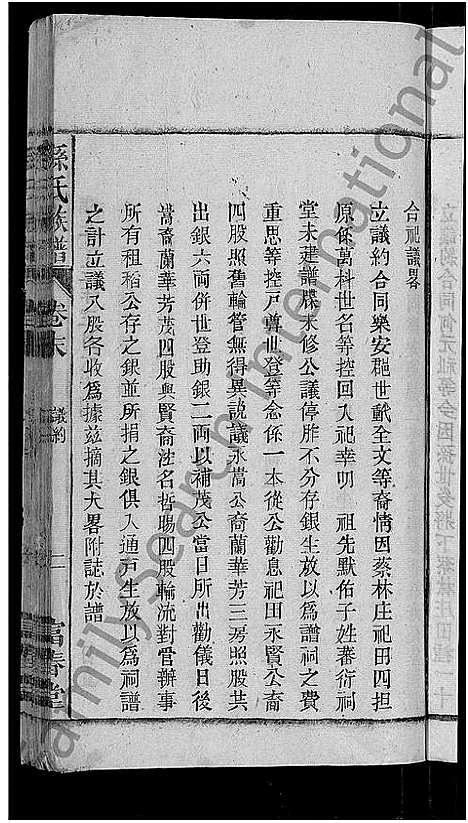 合祀議畧
立議約合同樂安郡世畎仝文等裔情因蔡林庄祀田四担
原係萬科世名等控回入祀幸明　祖先默佑子姓蕃衍祠
堂未建譜牒未修公議停胙不分存銀生放以爲譜祠之費
重思等控戶尊世登等僉係一本從公勸息祀田永賢公裔
四股照舊輪管無得異說議永嵩公裔蘭華芳三房照股共
出銀六両併世登助銀二両以補茂公當日所出勸儀日後
嵩裔蘭華芳茂四股與賢裔洼名哲賜四股輪流對管辦事
所有租稻公存之銀並所捐之銀俱入通戶生放以爲祠譜
之計立議八股各收爲據茲摘其大畧附誌於譜
孫氏族譜
卷末
議約
二
富春堂
Family Search International